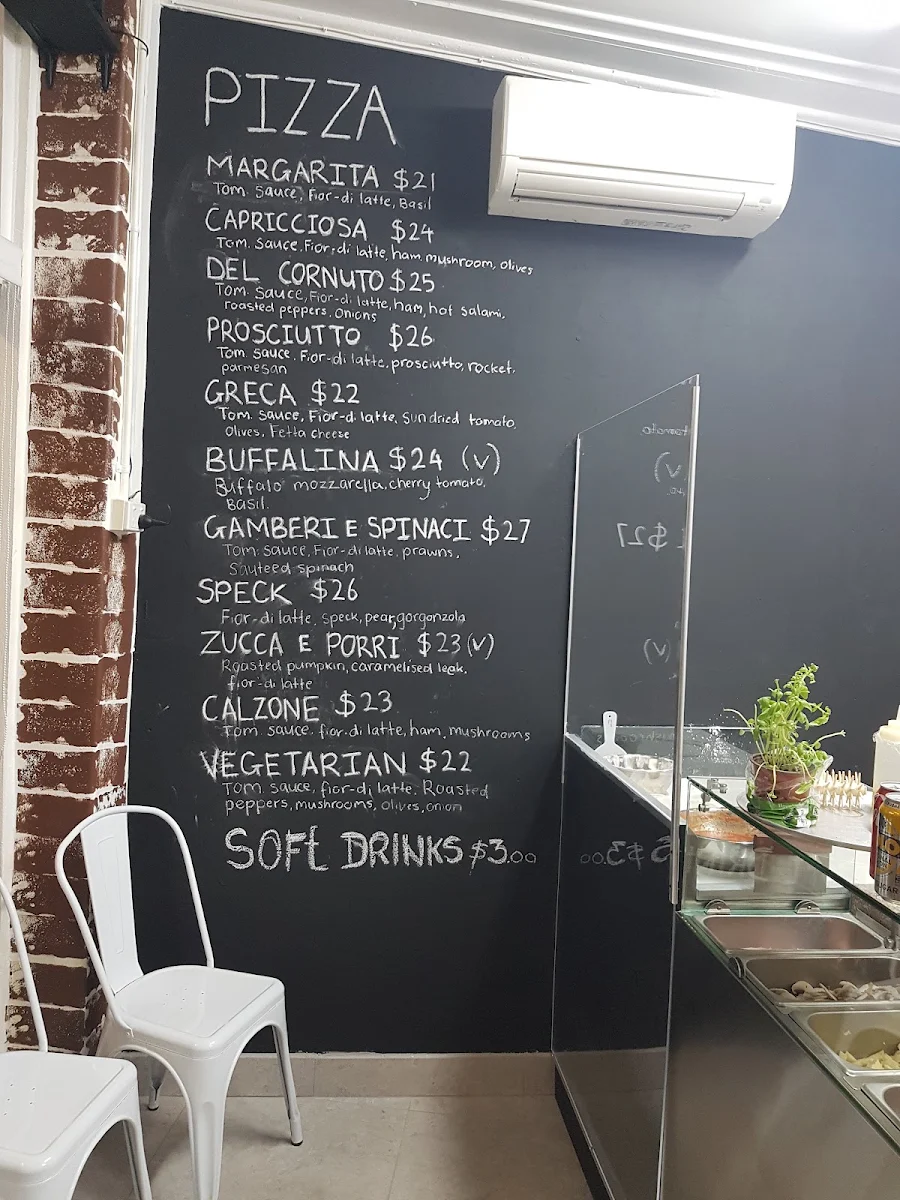 PIZZA
MARGARITA $21
Tom. Sauce, Fior-di latte, Basil
CAPRICCIOSA $24
Tom. Sauce, Fior-di latte, ham, mushroom, olives
DEL CORNUTO $25
Tom. Sauce, Fior-di latte, ham, hot salami,
roasted peppers, Onions
PROSCIUTTO $26
Tom. Sauce, Fior-di latte, prosciutto, rocket,
parmesan
GRECA $22
Tom. Sauce, Fior-di latte, Sundried tomato,
Olives, Fetta cheese
BUFFALINA $24 (V)
Buffalo mozzarella, cherry tomato,
BASIL.
GAMBERI E SPINACI $27
Tom. Sauce, Fior-di latte, prawns,
Sauteed spinach
SPECK $26
Fior-di latte, speck, pear, gorgonzola
ZUCCA E PORRI $23 (V)
Roasted pumpkin, caramelised leak,
fior-di latte
CALZONE $23
Tom. sauce, fior-di latte, ham, mushrooms
VEGETARIAN $22
Tom. sauce, fior-di latte, Roasted
peppers, mushrooms, olives, onion
SOFt DRINKS $3.00